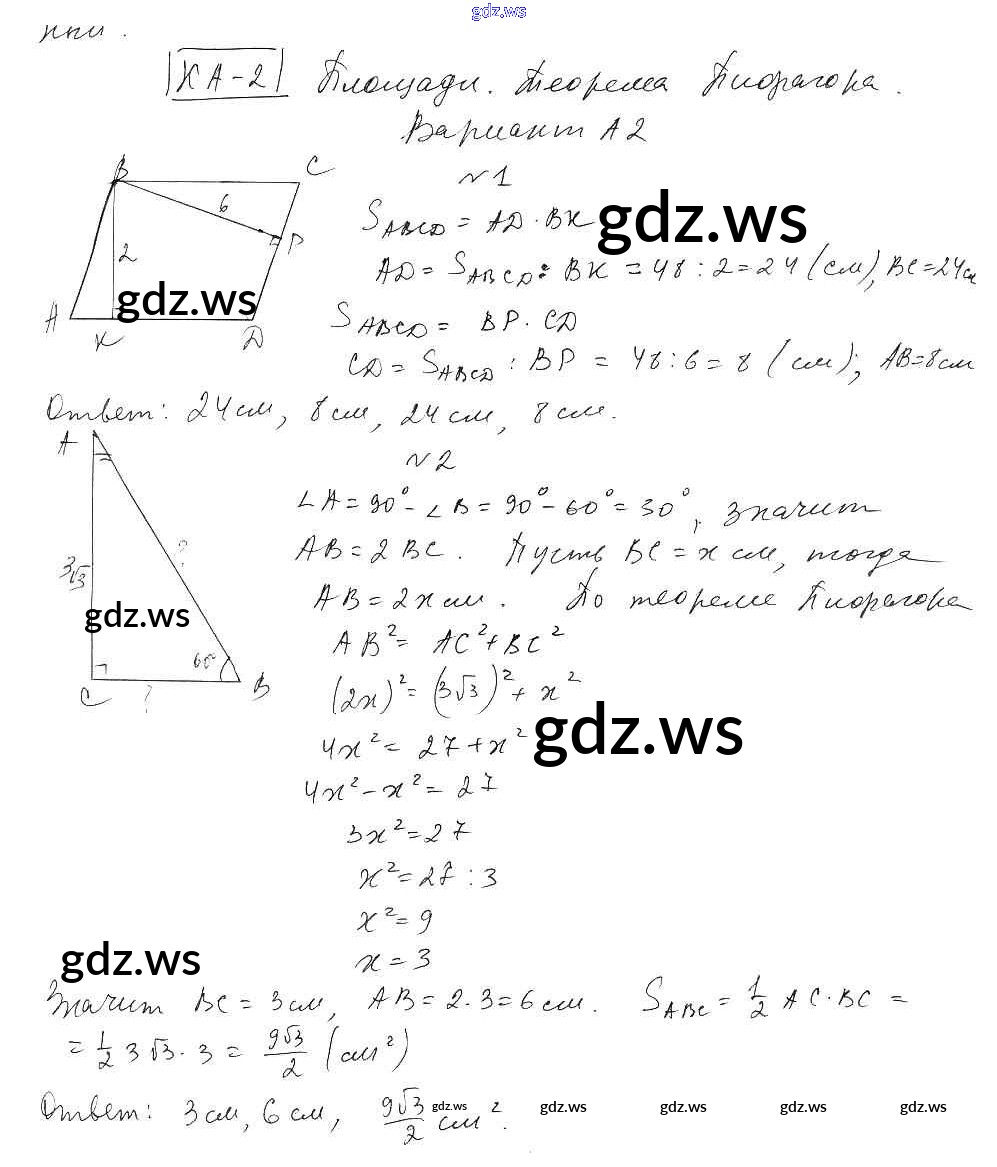 gdz.ws
ппи.
КА-2 Площади. Теорема Пифагора.
Вариант А2
B C
6
2
P
A K D
gdz.ws
№1
S_ABCD = AD · BK gdz.ws
AD = S_ABCD : BK = 48 : 2 = 24 (см), BC = 24см
S_ABCD = BP · CD
CD = S_ABCD : BP = 48 : 6 = 8 (см); AB = 8см
Ответ: 24см, 8см, 24см, 8см.
A
?
3√3
gdz.ws
60°
C ? B
№2
∠A = 90° - ∠B = 90° - 60° = 30°, значит
AB = 2BC. Пусть BC = x см, тогда
AB = 2x см. По теореме Пифагора
AB² = AC² + BC²
(2x)² = (3√3)² + x²
4x² = 27 + x² gdz.ws
4x² - x² = 27
3x² = 27
x² = 27 : 3
x² = 9
x = 3
gdz.ws
Значит BC = 3см, AB = 2·3 = 6см. S_ABC = 1/2 AC·BC =
= 1/2 3√3 · 3 = 9√3/2 (см²)
Ответ: 3см, 6см, 9√3/2 см².
gdz.ws gdz.ws gdz.ws gdz.ws gdz.ws